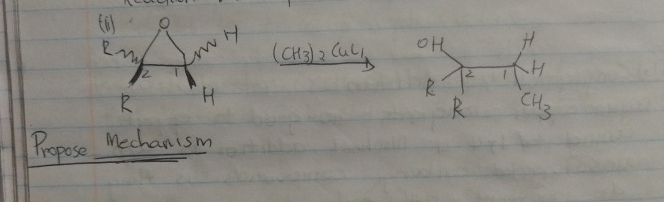 (ii) O
R H OH H
(CH3)2 CuLi
2 1 2 1 H
R H R R CH3
Propose Mechanism